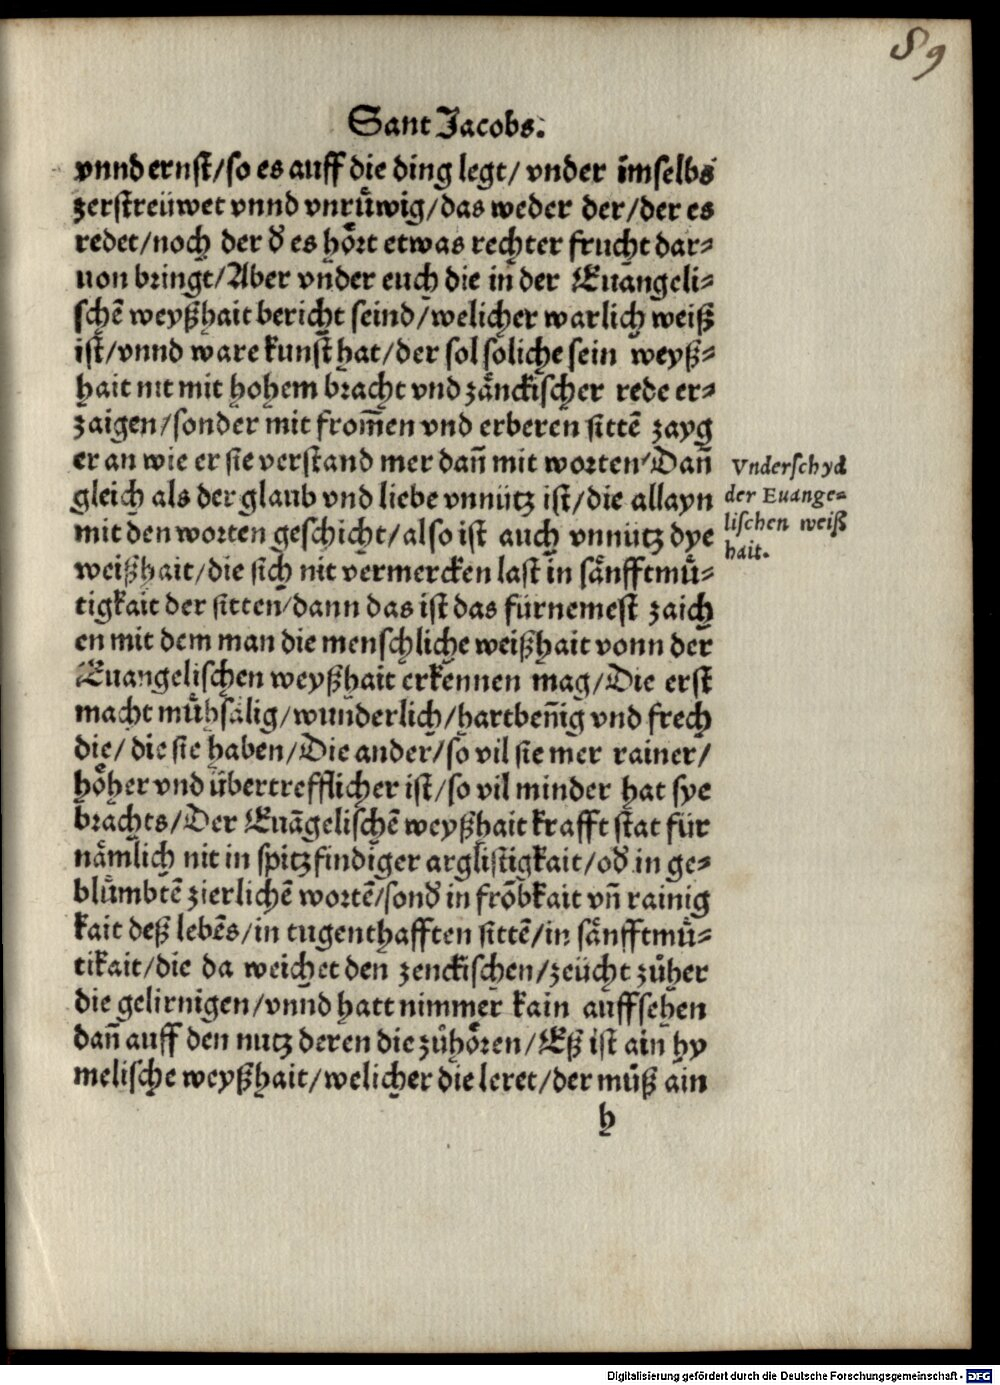 89
Sant Jacobs.
vnnd ernst/so es auff die ding legt/ vnder im̃selbs
zerstreüwet vnnd vnrůwig/das weder der/der es
redet/noch der d̕ es hoͤrt etwas rechter frucht dar⸗
uon bringt/Aber vnder euch die in der Euangeli⸗
schẽ weyßhait bericht seind/welicher warlich weiß
ist/vnnd ware kunst hat/der sol soliche sein weyß⸗
hait nit mit hohem bracht vnd zaͤnckischer rede er⸗
zaigen/sonder mit from̃en vnd erberen sittẽ zayg
er an wie er sie verstand mer dañ mit worten/Dañ
gleich als der glaub vnd liebe vnnütz ist/die allayn
mit den worten geschicht/also ist auch vnnutz dye
weißhait/die sich nit vermercken last in saͤnfftmuͤ⸗
tigkait der sitten/dann das ist das fürnemest zaich
en mit dem man die menschliche weißhait vonn der
Euangelischen weyßhait erkennen mag/Die erst
macht muͤhsaͤlig/wunderlich/hartbeñig vnd frech
die/die sie haben/Die ander/so vil sie mer rainer/
hoͤher vnd übertrefflicher ist/so vil minder hat sye
brachts/Der Euãgelischẽ weyßhait krafft stat für
naͤmlich nit in spitzfindiger arglistigkait/od̕ in ge⸗
bluͤmbtẽ zierlichẽ wortẽ/sond̕ in frõbkait vñ rainig
kait deß lebẽs/in tugenthafften sittẽ/in saͤnfftmuͤ⸗
tikait/die da weichet den zenckischen/zeücht zůher
die gelirnigen/vnnd hatt nimmer kain auffsehen
dañ auff den nutz deren die zůhoͤren/Eß ist ain hy
melische weyßhait/welicher die leret/der můß ain
h
Vnderschyd
der Euange⸗
lischen weiß
hait.
Digitalisierung gefördert durch die Deutsche Forschungsgemeinschaft - DFG